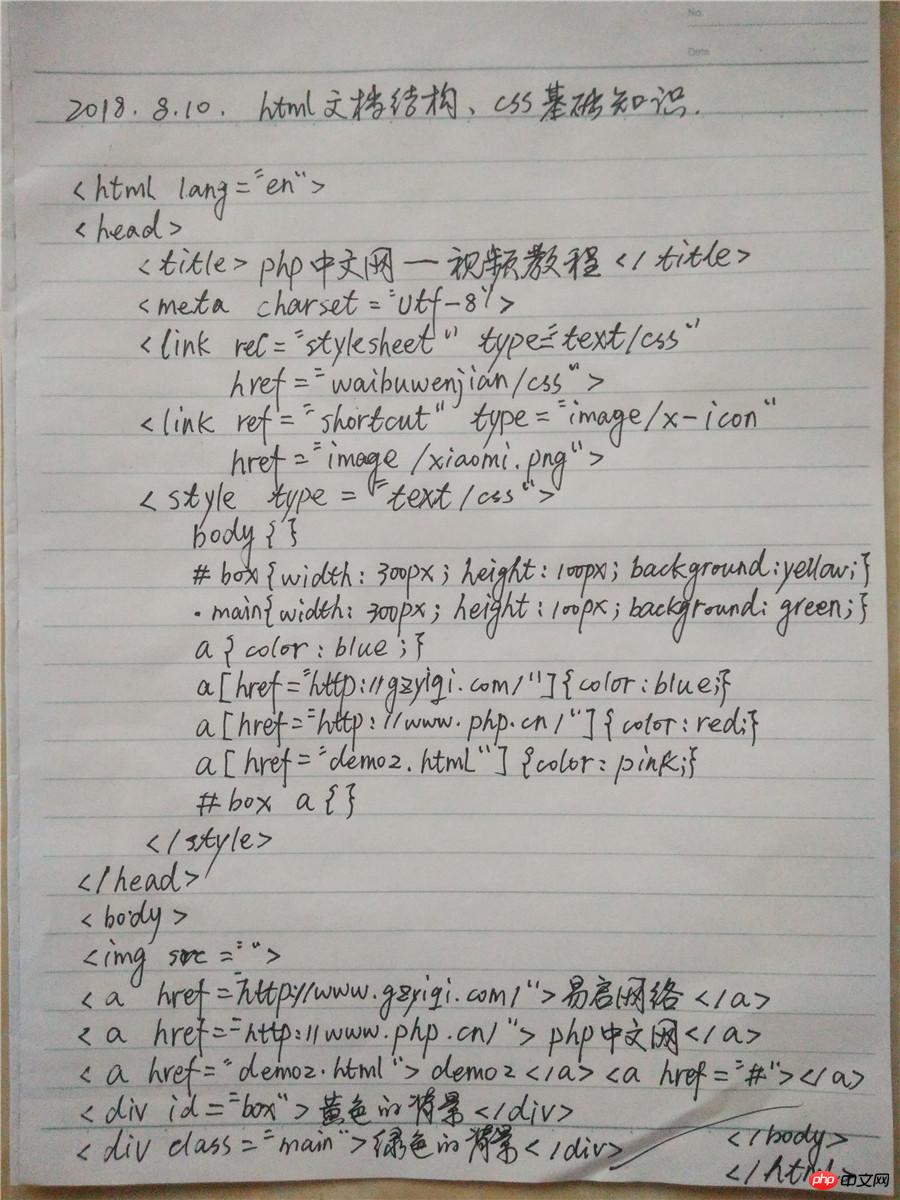 No.
Date
2018.8.10. html文档结构、css基础知识.
<html lang="en">
<head>
<title>php中文网—视频教程</title>
<meta charset="utf-8">
<link rel="stylesheet" type="text/css"
href="waibuwenjian/css">
<link ref="shortcut" type="image/x-icon"
href="image/xiaomi.png">
<style type="text/css">
body{}
#box{width:300px; height:100px; background:yellow;}
.main{width:300px; height:100px; background:green;}
a{color:blue;}
a[href="http://gzyiqi.com/"]{color:blue;}
a[href="http://www.php.cn/"]{color:red;}
a[href="demo2.html"]{color:pink;}
#box a{}
</style>
</head>
<body>
<img src="">
<a href="http://www.gzyiqi.com/">易启网络</a>
<a href="http://www.php.cn/">php中文网</a>
<a href="demo2.html">demo2</a><a href="#"></a>
<div id="box">黄色的背景</div>
<div class="main">绿色的背景</div>
</body>
</html>
php中文网